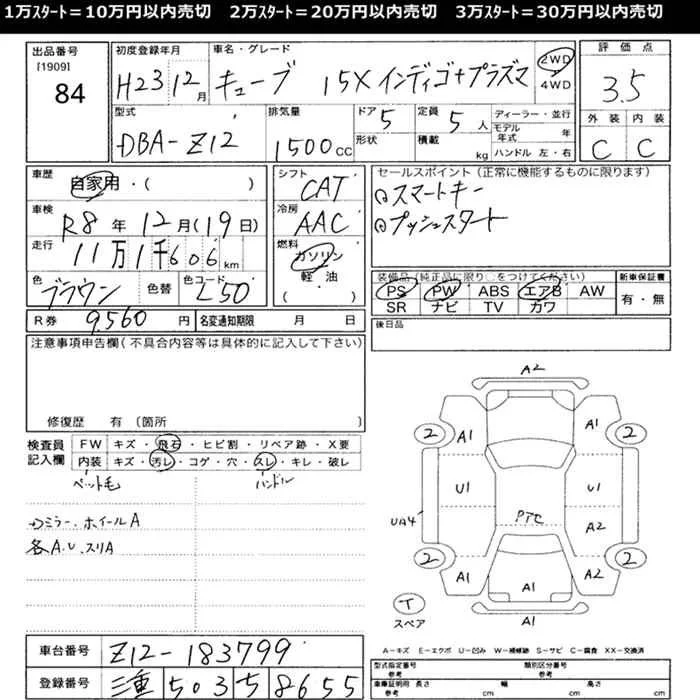 1万スタート＝10万円以内売切 2万スタート＝20万円以内売切 3万スタート＝30万円以内売切
出品番号 [1909] 84
初度登録年月 H23 12月
車名・グレード キューブ 15X インディゴ+プラズマ
2WD 4WD
評価点 3.5
外装 C 内装 C
型式 DBA-Z12
排気量 1500cc
ドア 5 形状
定員 5人 積載 kg
ディーラー・並行
モデル年式 年
ハンドル 左・右
車歴 自家用・( )
車検 R8年12月(19日)
走行 11万1千606km
色 ブラウン 色替 色コード L50
シフト CAT
冷房 AAC
燃料 ガソリン 軽・油 ( )
セールスポイント(正常に機能するものに限ります)
スマートキー
プッシュスタート
装備品(純正品に限り○をつけてください) 新車保証書
PS PW ABS エアB AW 有・無
SR ナビ TV カワ
R券 9,560円 名変通知期限 月 日
後日品
注意事項申告欄(不具合内容等は具体的に記入して下さい)
修復歴 有 (箇所 )
検査員記入欄
FW キズ・飛石・ヒビ割・リペア跡・X要
内装 キズ・汚レ・コゲ・穴・スレ・キレ・破レ
ペット毛 ハンドル
ミラー、ホイールA
各A.U.スリA
A2
2 A1 A1 2
U1 U1
UA4 PTC A2
2 A1 A2 2
A1
T スペア A1
A−キズ E−エクボ U−凹み W−補修跡 S−サビ C−腐食 XX−交換済
車台番号 Z12-183799
登録番号 三重 503 ち 8655
型式指定番号 参考 類別区分番号 参考
車庫証明用 参考 長さ cm 幅 cm 高さ cm